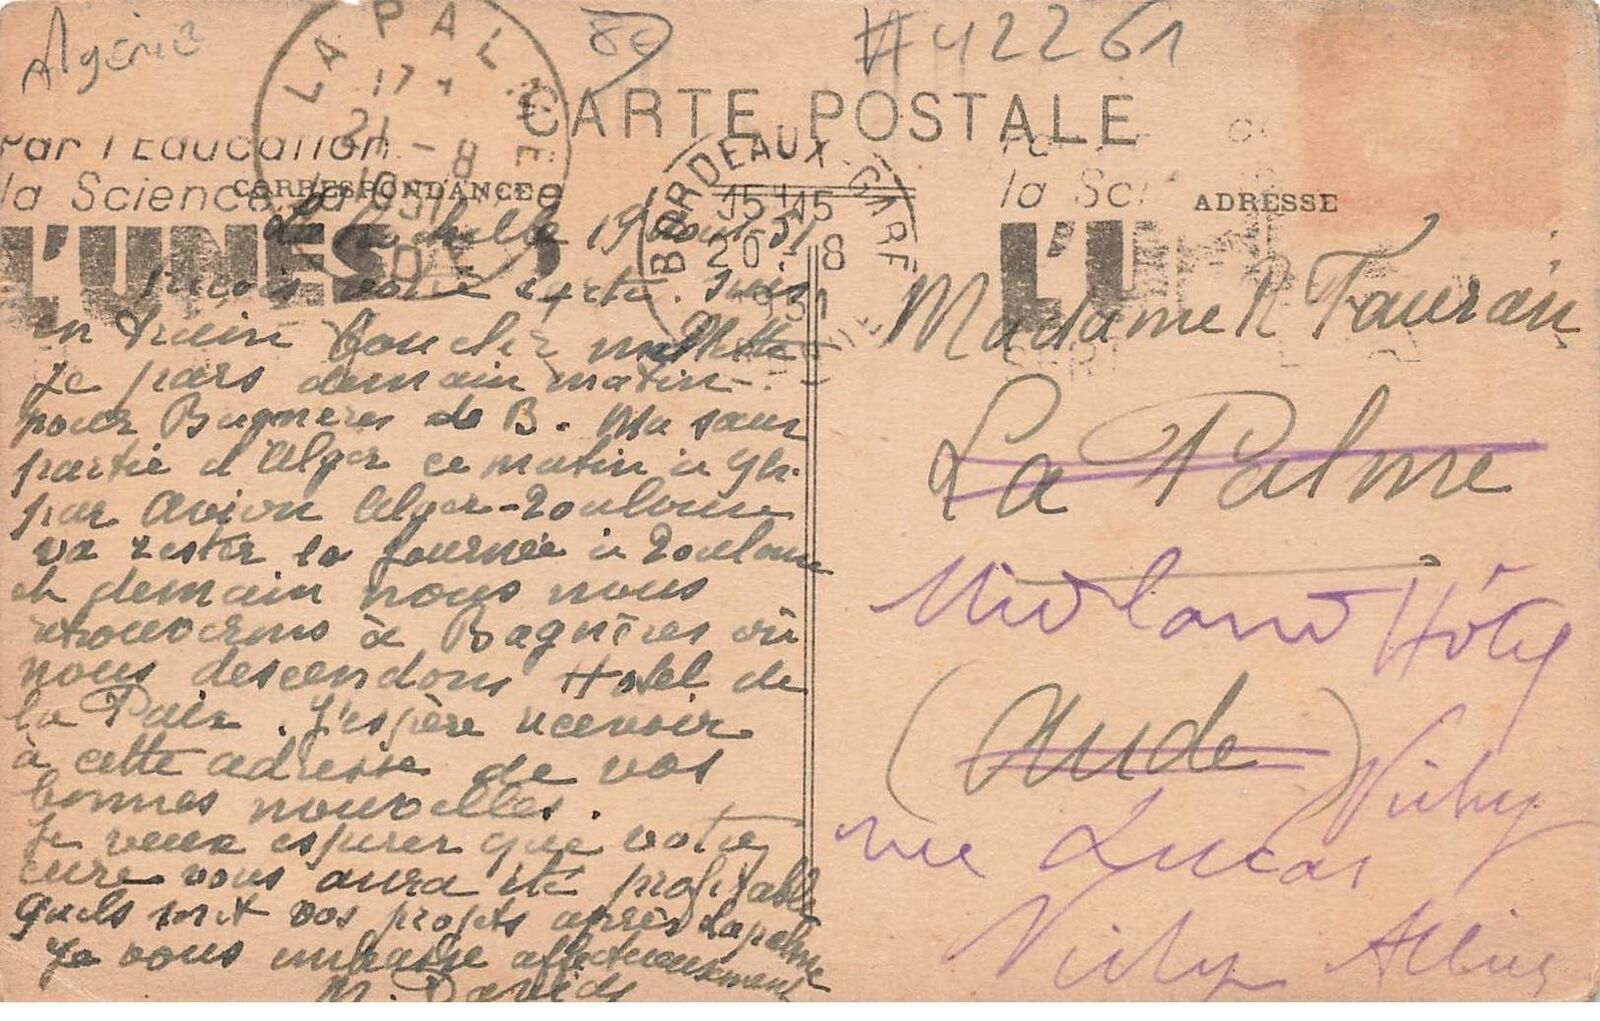 Algérie
80
# 42261
CARTE POSTALE
LA PALME
17
21 - 8
AUDE
BORDEAUX-GARE
15 H 15
20 - 8
1931
Par l'Education
la Science la
L'UNESCO
la Sci
L'U
CORRESPONDANCE
ADRESSE
La Rochelle 19 Août 31
Reçois votre carte. Suis
en train boucler mallette
Je pars demain matin
pour Bagnères de B. Ma sœur
partie d'Alger ce matin à 9h.
par avion Alger-Toulouse
va rester la journée à Toulouse
et demain nous nous
retrouverons à Bagnères où
nous descendons Hotel de
la Paix. J'espère recevoir
à cette adresse de vos
bonnes nouvelles.
Je veux espérer que votre
cure vous aura été profitable
Quels sont vos projets après Lapalme
Je vous embrasse affectueusement
M. David
Madame R Fauran
La Palme
Midland Hôtel
(Aude)
Vichy
rue Lucas
Vichy Allier